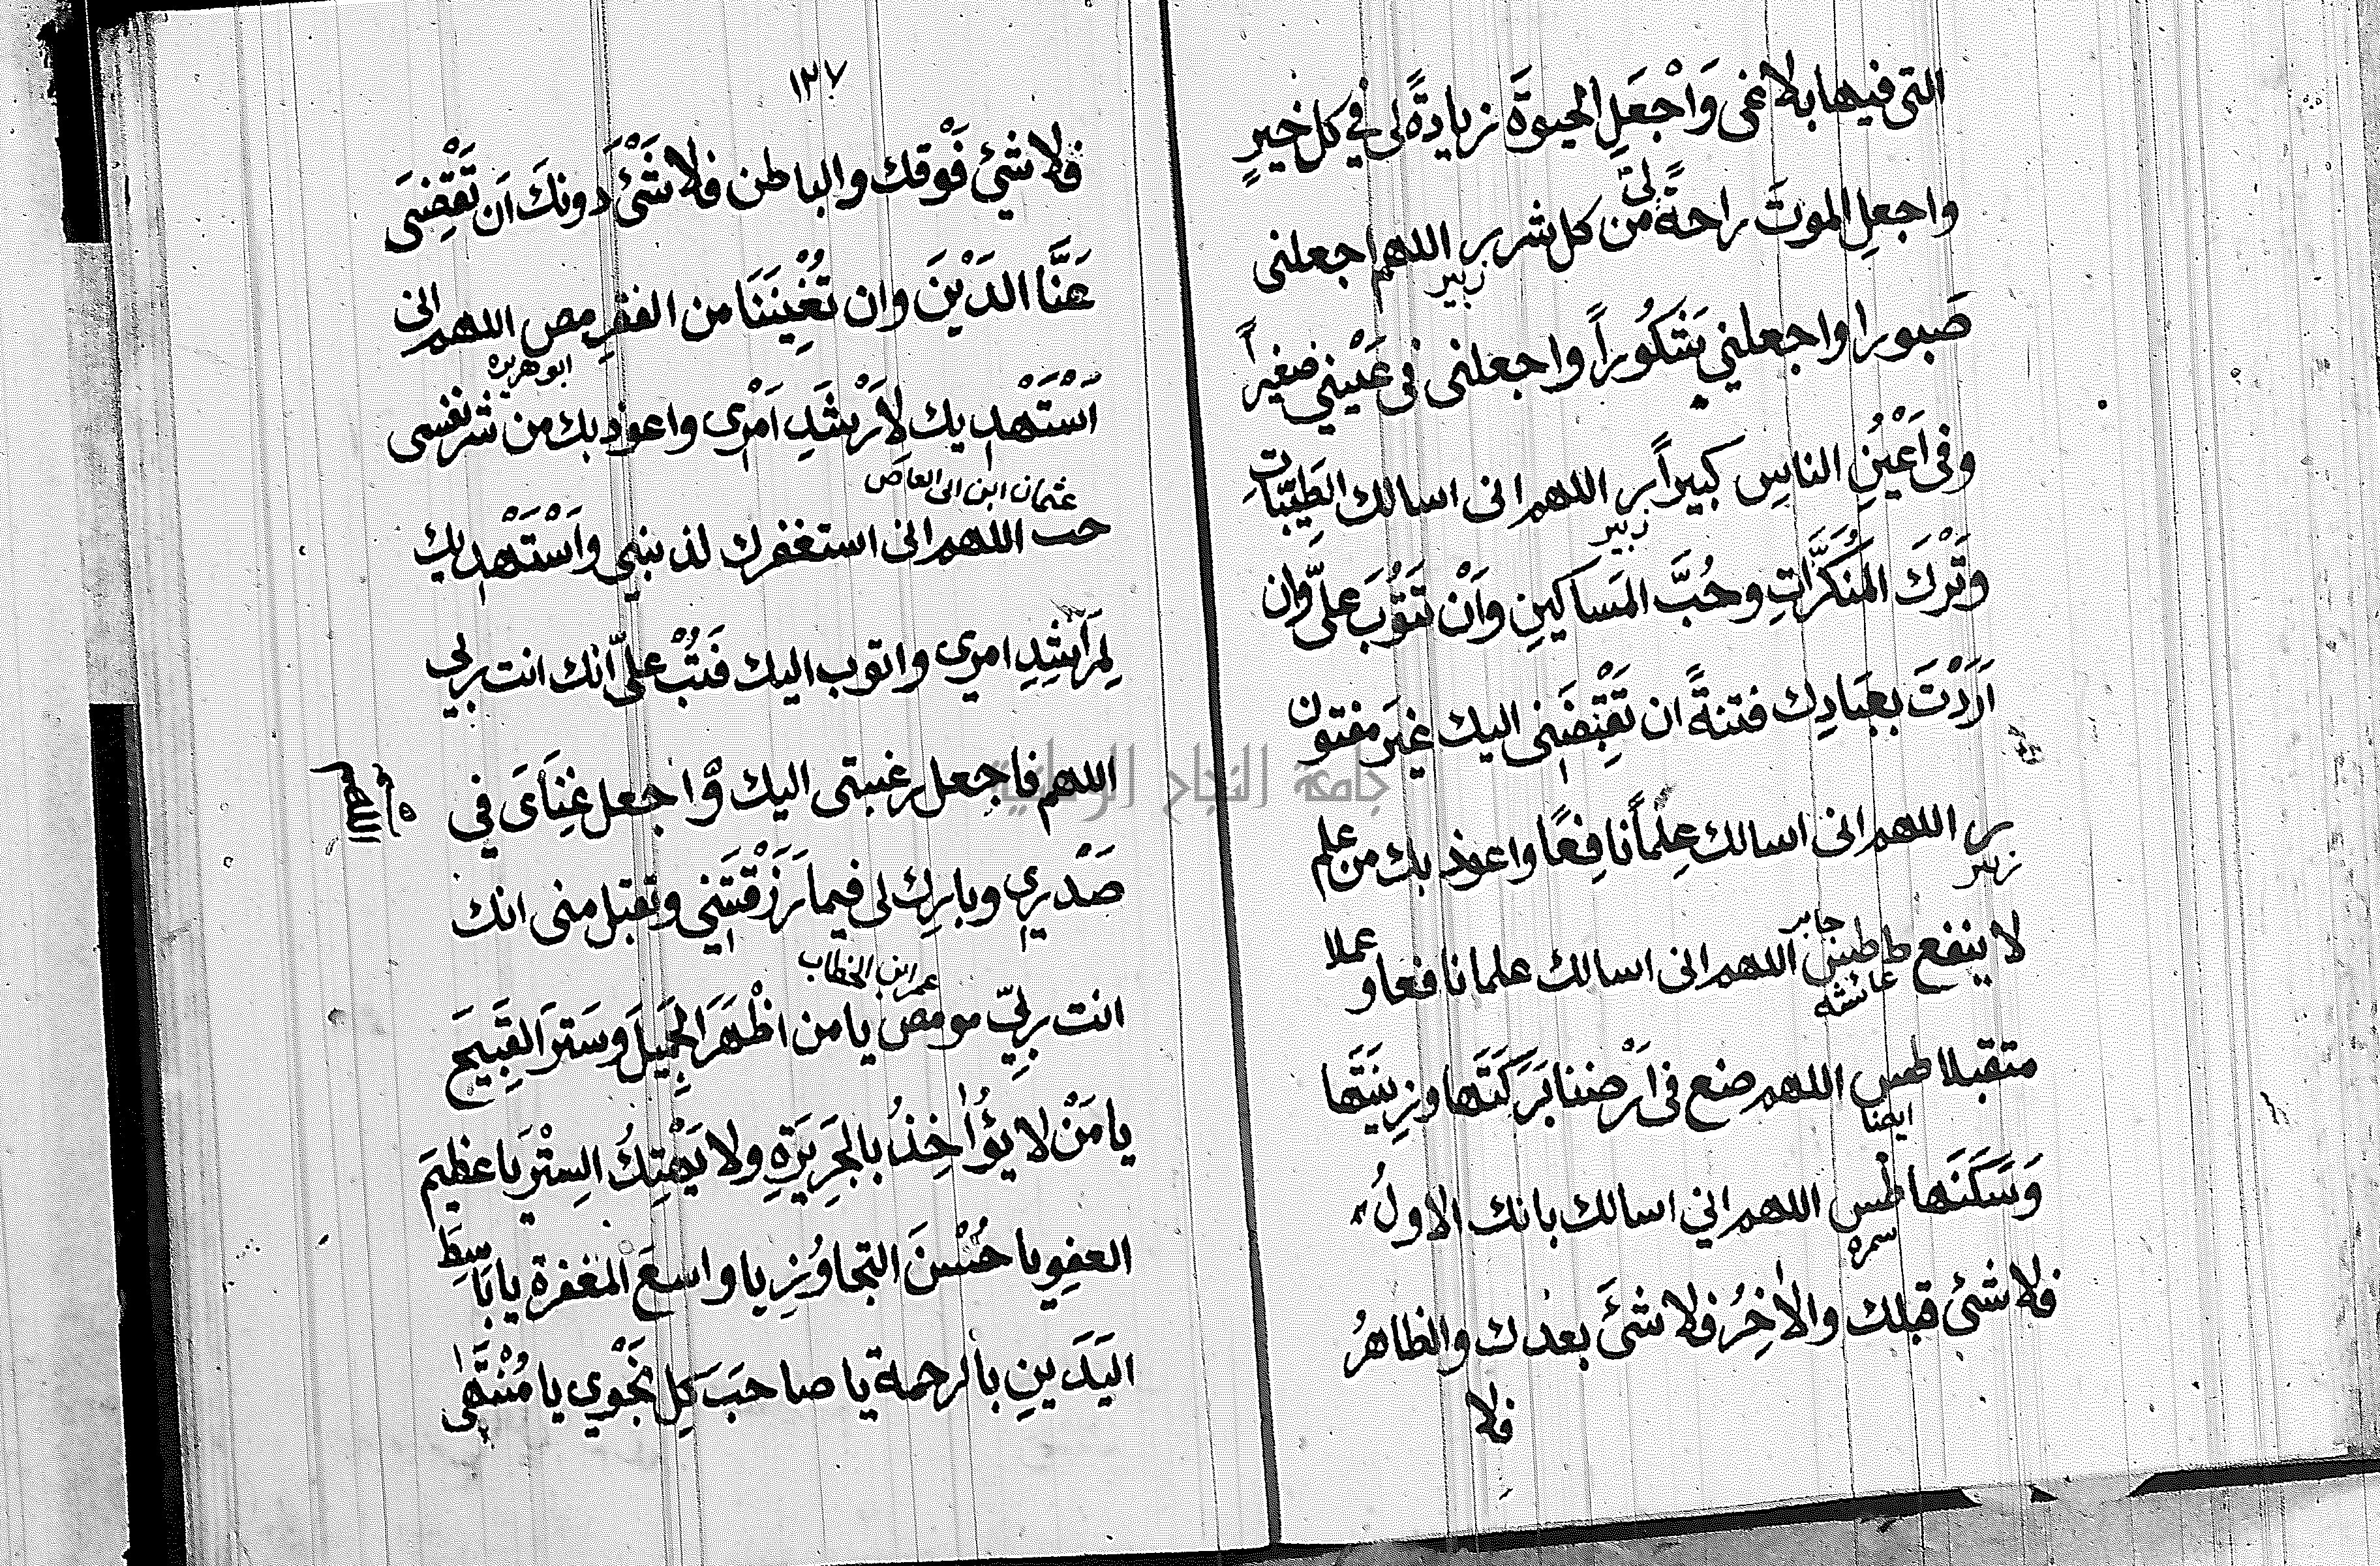 التى فيها بلاغى وَاجْعَلِ الحيوةَ زيادةً لى في كل خيرٍ
واجعلِ الموتَ راحةً لى من كل شر بر اللهم اجعلنى
زبير
صَبورا واجعلني شَكُوراً واجعلنى فى عَيْنِي صغيراً
وفى اَعْيُنِ الناسِ كبيراً بر اللهم انى اسالك الطَيِّبَاتِ
زبير
وتَرْكَ المُنكَرَاتِ وحُبَّ المَساكينِ وَاَنْ تَتُوبَ علىَّ وان
اَرَدْتَ بِعِبَادِك فتنةً ان تَقْبِضَنِى اليك غيرَ مفتون
بر اللهم انى اسالك عِلْماً نافِعًا واعوذ بك من علم
زبير
لا ينفع ط طس اللهم انى اسالك علما نافعا وعملا
جابر
عائشه
متقبلا طس اللهم ضع فى اَرْضنا بَرَكَتَها وزِينَتَها
ايضا
وَسَكَنَها طس اللهم اني اسالك بانك الاولُ
سمره
فلا شئ قبلك والاٰخِرُ فلا شئَ بعدك والظاهرُ
فلا
١٣٧
فلا شئ فَوْقك والباطن فلا شَئْ دونكَ اَن تَقْضِىَ
عَنَّا الدَيْنَ وان تُغْنِيَنَا من الفقرِ مص اللهم انى
ابو هريره
اَسْتَهْدِيك لِاَرْشَدِ اَمْرِى واعوذ بك من شر نفسى
عثمان ابن ابى العاص
حب اللهم انى استغفرك لذنبي واَسْتَهْدِيك
لِمَرَاشِدِ امرى واتوب اليك فَتُبْ علىَّ انك انت ربي
اللهم فاجعل رغبتى اليك وَاجعل غِنَاىَ في
صَدْرِي وبارِك لى فيما رَزَقْتَنِي وتقبل منى انك
عمر ابن الخطاب
انت ربِّي مو مص يا من اظْهَرَ الجَمِيلَ وسَترَ القَبِيحَ
يا مَنْ لا يؤاٰخِذُ بالجَرِيرَةِ ولا يَهْتِكُ السِتْرَ يا عظيمَ
العفوِ يا حُسْنَ التجاوُزِ يا واسعَ المغفرة يا باسِطَ
اليَدَينِ بالرحمة يا صاحبَ كلِ نَجْوي يا مُنْتَهٰى
جامعة النجاح الوطنية